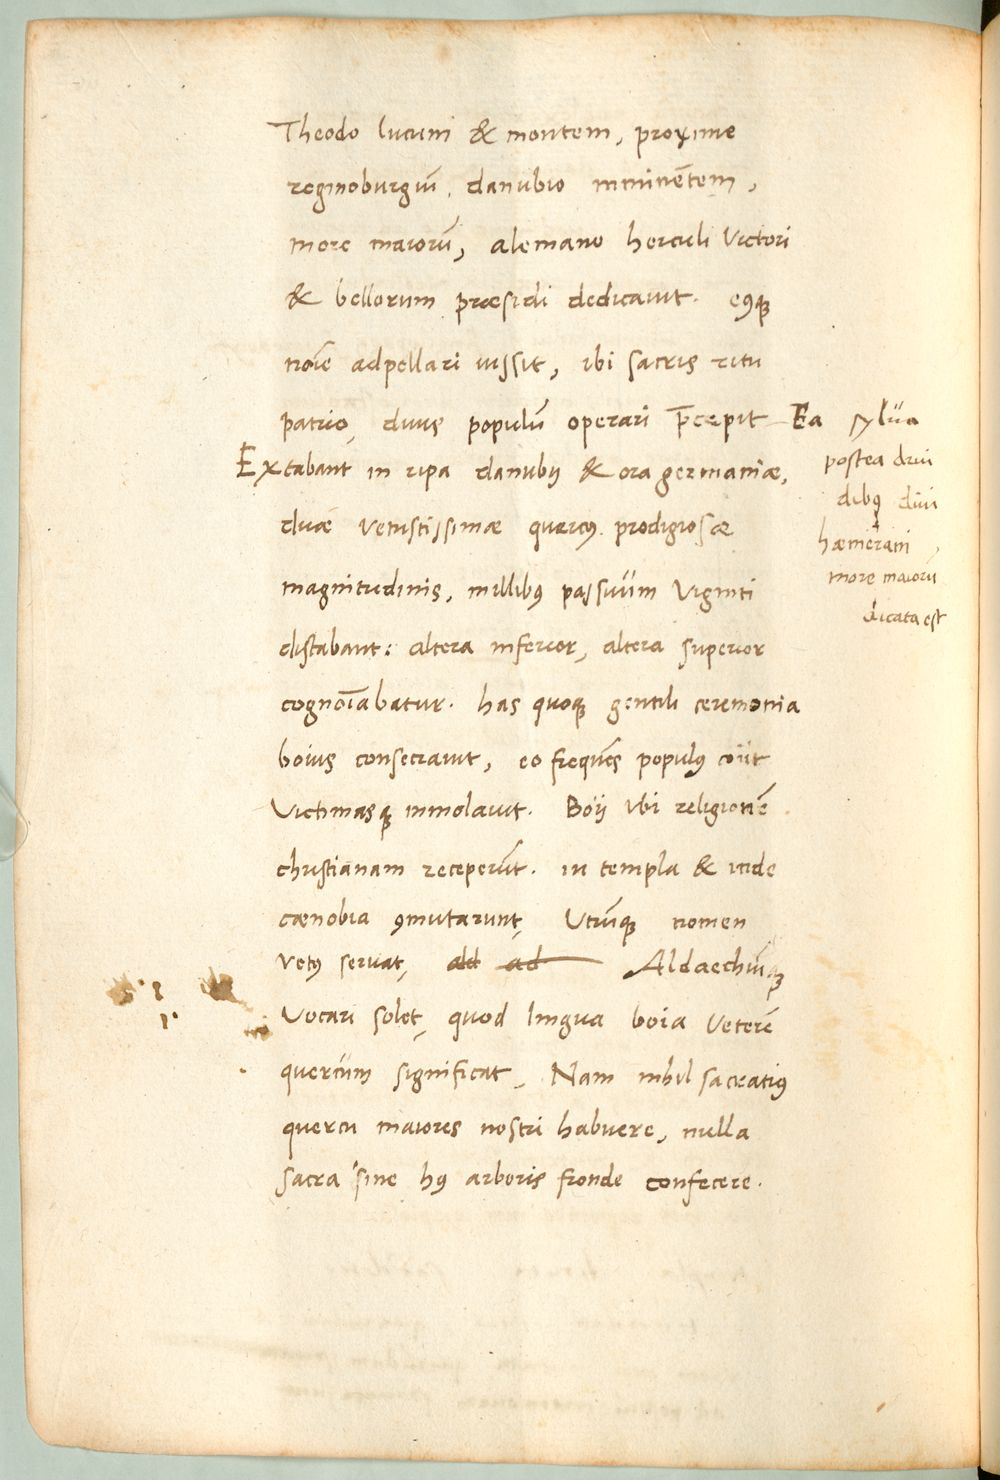 Theodo lucum & montem, proxime
reginoburgiũ, danubio imminẽtem,
more maiorũ, alemano herculi Victori
& bellorum præsidi dedicauit. eꝯqꝫ
noĩe adpellari iussit, ibi sacris ritu
patrio, duus populũ operari p̄cepit Ea sylũa
postea diui
dibꝯ diui
hæmerani,
more maiorũ
dicata est
Extabant in ripa danubij & ora germaniæ,
duæ vetustissimæ quercꝯ prodigiosæ
magnitudinis, millibꝯ passuũm Viginti
distabant: altera inferior, altera superior
cognoĩabatur. has quoqꝫ gentili ceremonia
boius consecrauit, eo frequẽs populꝯ coiit
Victimasqꝫ immolauit. Boij ibi religionẽ
christianam receperũt. in templa & inde
cænobia ꝯmutarunt, Utrũqꝫ nomen
vetꝯ seruat, ald ad Aldaechũqꝫ
Vocari solet, quod lingua boia Veterẽ
quercũm significat, Nam nihil sacratiꝯ
quercu maiores nostri habuere, nulla
sacra sine hꝯ arboris fronde confecere.